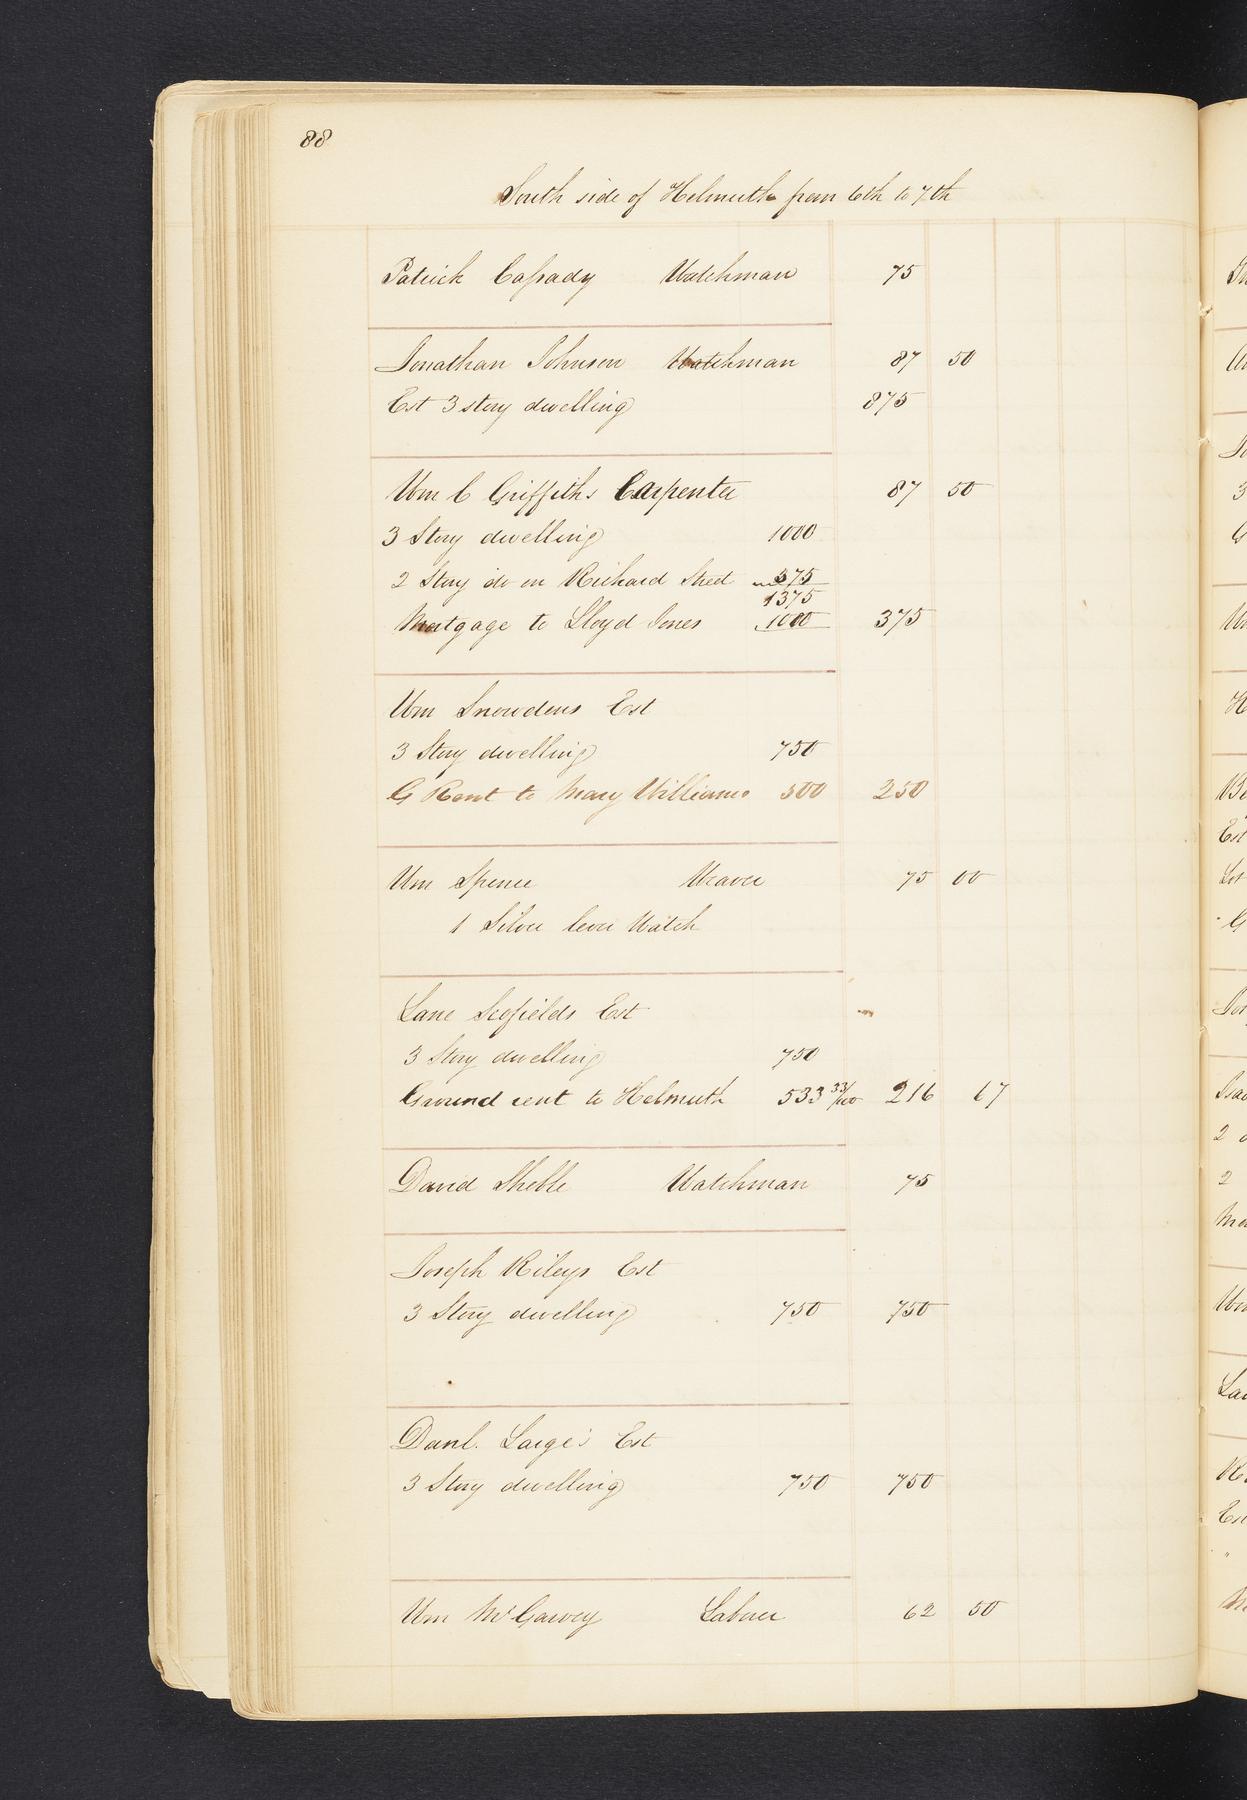 88
South side of Helmuth from 6th to 7th
Patrick Cassady Watchman 75
Jonathan Johnson Watchman 87 50
Est 3 story dwelling 875
Wm C Griffiths Carpenter 87 50
3 Story dwelling 1000
2 Story do on Richard Street 375
1375
Mortgage to Lloyd Jones 1000 375
Wm Snowdens Est
3 Story dwelling 750
G Rent to Mary Williams 500 250
Wm Spence Weaver 75 00
1 Silver lever Watch
Lane Scofields Est
3 Story dwelling 750
Ground rent to Helmuth 533 33/100 216 67
David Sheble Watchman 75
Joseph Rileys Est
3 Story dwelling 750 750
Danl. Large's Est
3 Story dwelling 750 750
Wm McGarvey Laborer 62 50